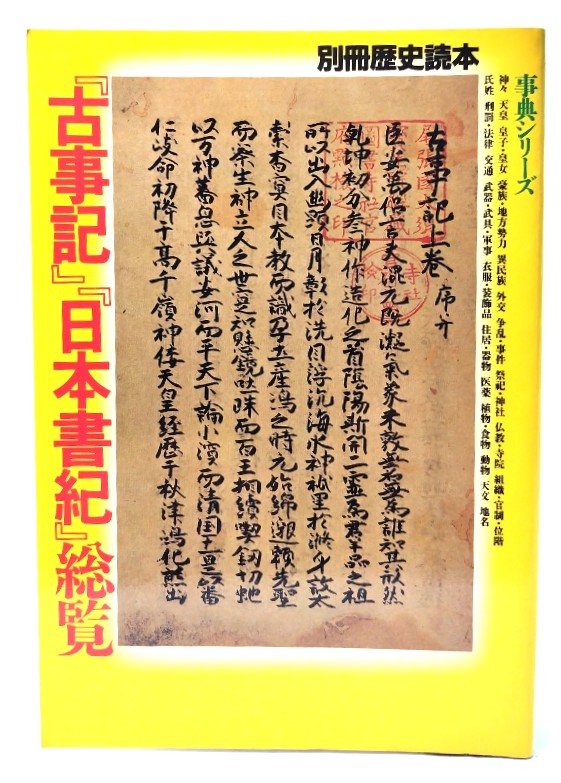 別冊歴史読本
事典シリーズ
神々 天皇 皇子・皇女 豪族・地方勢力 異民族 外交 争乱・事件 祭祀・神社 仏教・寺院 組織・官制・位階
氏姓 刑罰・法律 交通 武器・武具・軍事 衣服・装飾品 住居・器物 医薬 植物・食物 動物 天文 地名
古事記上巻 序并
臣安萬侶言夫混元既凝氣象未敦無名無為誰知其形然
乾坤初分参神作造化之首陰陽斯開二霊為群品之祖
所以出入幽顕日月彰於洗目浮沉海水神祇呈於滌身故太
素杳冥因本教而識孕土産嶋之時元始綿邈頼先聖
而察生神立人之世寔知懸鏡吐珠而百王相續喫釼切虵
以万神蕃息與議安河而平天下論小濱而清国土是以番
仁岐命初降于高千嶺神倭天皇経歴于秋津嶋化熊出
『古事記』『日本書紀』総覧